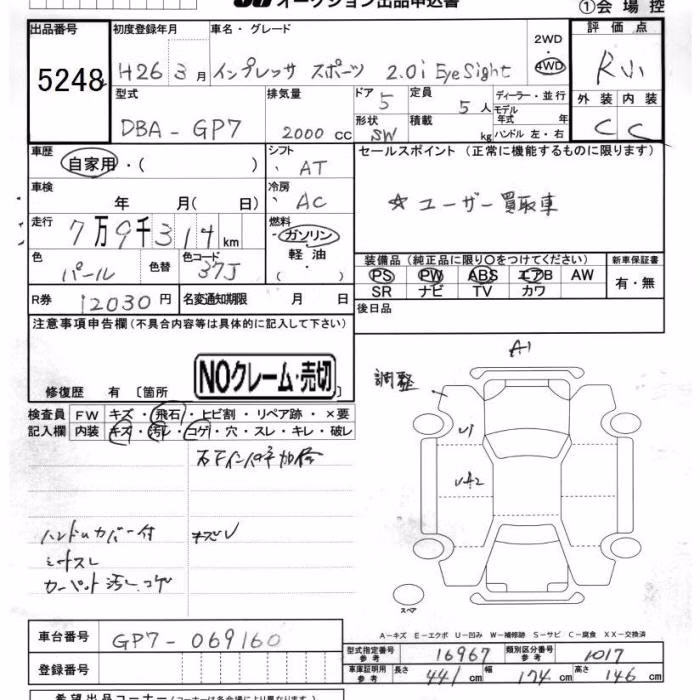 オークション出品申込書
①会場控
出品番号
5248
初度登録年月
H26 3月
車名・グレード
インプレッサ スポーツ 2.0i EyeSight
2WD
4WD
評価点
R
外装 内装
C C
型式
DBA-GP7
排気量
2000 cc
ドア
5
形状
SW
定員
5人
積載
kg
ディーラー・並行
モデル年式 年
ハンドル 左・右
車歴
自家用・( )
シフト
AT
セールスポイント (正常に機能するものに限ります)
☆ユーザー買取車
車検
年 月( 日)
冷房
AC
走行
7万9千314km
燃料
ガソリン
軽油
・( )
色
パール
色替
色コード
37J
装備品 (純正品に限り○をつけてください)
新車保証書
PS PW ABS エアB AW
SR ナビ TV カワ
有・無
R券
12030円
名変通知期限 月 日
後日品
注意事項申告欄(不具合内容等は具体的に記入して下さい)
NOクレーム・売切
修復歴 有 〔箇所 〕
検査員記入欄
FW キズ・飛石・ヒビ割・リペア跡・×要
内装 キズ・汚レ・コゲ・穴・スレ・キレ・破レ
ハンドルカバー付
シートスレ
カーペット汚レコゲ
A1
調整
U1
U42
スペア
A-キズ E-エクボ U-凹み W-補修跡 S-サビ C-腐食 XX-交換済
車台番号
GP7-069160
登録番号
型式指定番号 参考
16967
類別区分番号 参考
1017
車庫証明用 参考
長さ 441cm 幅 174cm 高さ 146cm
希望出品コーナー